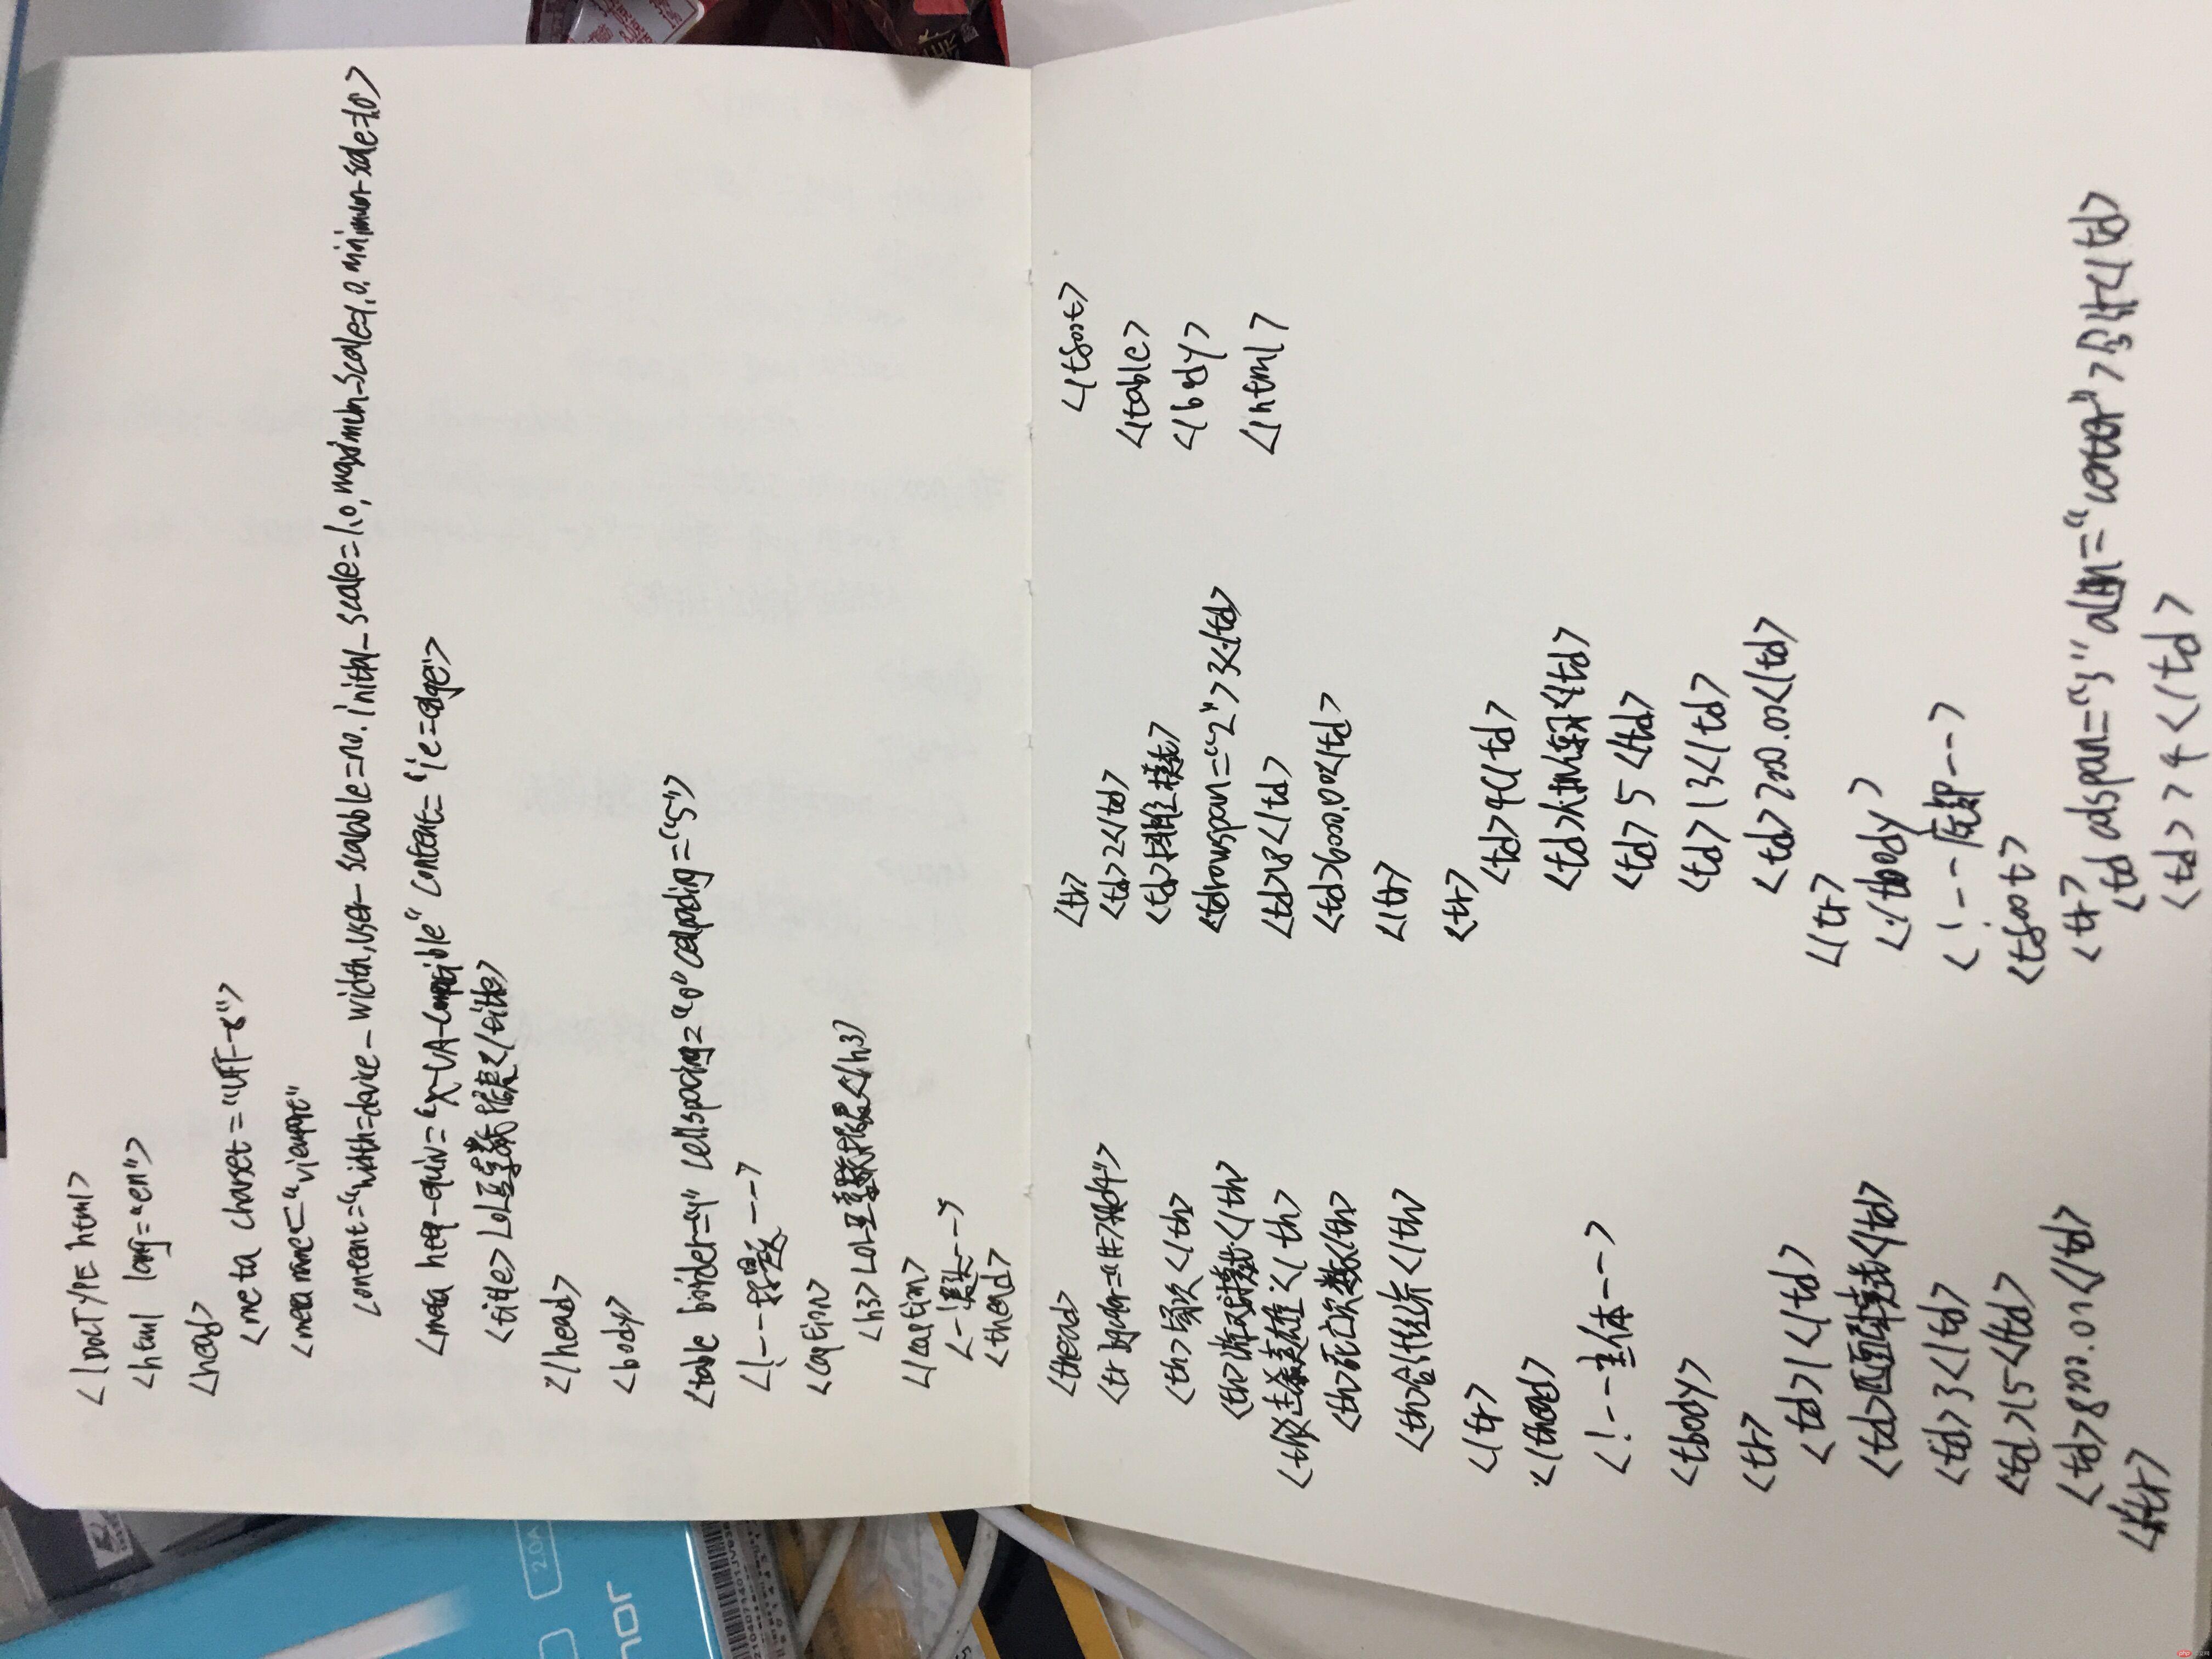 <!DOCTYPE html>
<html lang="en">
<head>
<meta charset="UTF-8">
<meta name="viewport"
content="width=device-width,user-scalable=no.initial-scale=1.0,maximum-scale=1.0.minimum-scale=1.0">
<meta http-equiv="X-UA-Compatible" content="ie=edge">
<title>LOL五季数据报表</title>
</head>
<body>
<table border="1" cellspacing="0" cellpadding="5">
<!---标题--->
<caption>
<h3>LOL五季数据报表</h3>
</caption>
<--表头--->
<thead>
<thead>
<th>场次</th>
<th>游戏模式</th>
<th>击杀英雄</th>
<th>死亡次数</th>
<th>合计经济</th>
</tr>
</thead>
<!---主体--->
<tbody>
<tr>
<td>1</td>
<td>匹配模式</td>
<td>3</td>
<td>15</td>
<td>800.01</td>
</tr>
<tr>
<td>2</td>
<td>排位模式>
<td rowspan="2">3</td>
<td>8</td>
<td>6000.00</td>
</tr>
<tr>
<td>4</td>
<td>5</td>
<td>13</td>
<td>200.00</td>
</tr>
</tbody>
<!--底部--->
<tfoot>
<tr>
<td colspan="3" align="center">总计</td>
<td>74</td>
</tfoot>
</table>
</body>
</html>
20A
nor